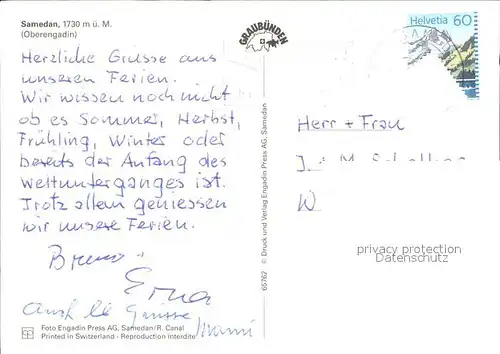 Samedan, 1730 m ü. M.
(Oberengadin)
Herzliche Grüsse aus
unseren Ferien.
Wir wissen noch nicht
ob es Sommer, Herbst,
Frühling, Winter oder
bereits der Anfang des
Weltunterganges ist.
Trotz allem geniessen
wir unsere Ferien.
Bruno
Erna
auch
Grüsse
Mami
Foto Engadin Press AG, Samedan/R. Canal
Printed in Switzerland · Reproduction interdite
GRAUBÜNDEN
65762 © Druck und Verlag Engadin Press AG, Samedan
Helvetia 60
Herr + Frau
W
privacy protection
Datenschutz